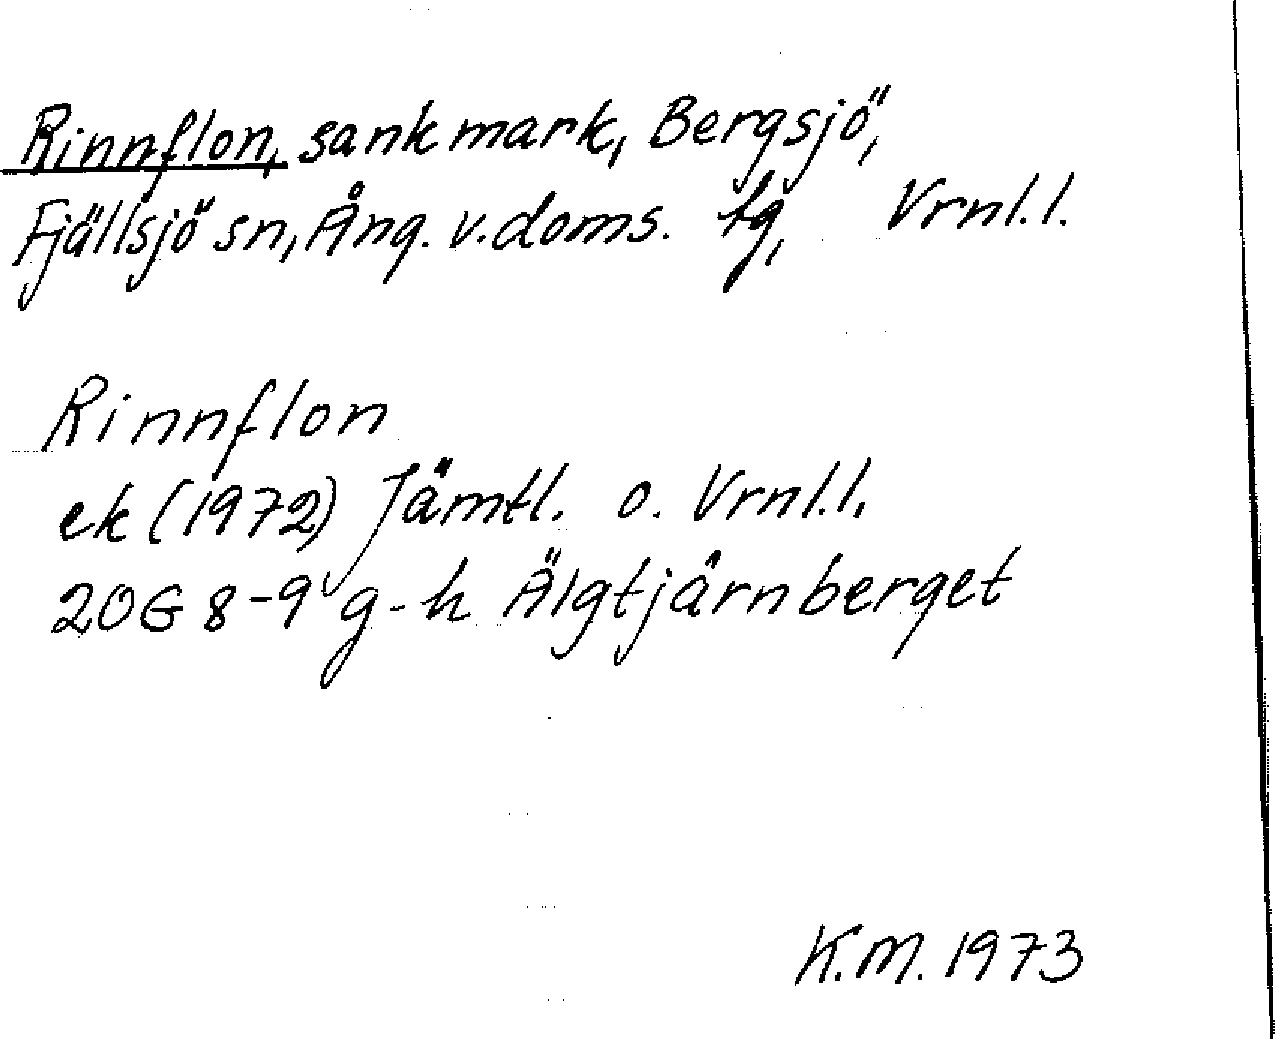 Rinnflon, sank mark, Bergsjö,
Fjällsjö sn, Ång. v. doms. tg, Vrnl.l.
Rinnflon
ek (1972) Jämtl. o. Vrnl.l.
20G 8-9 g-h Älgtjärnberget
K.M. 1973